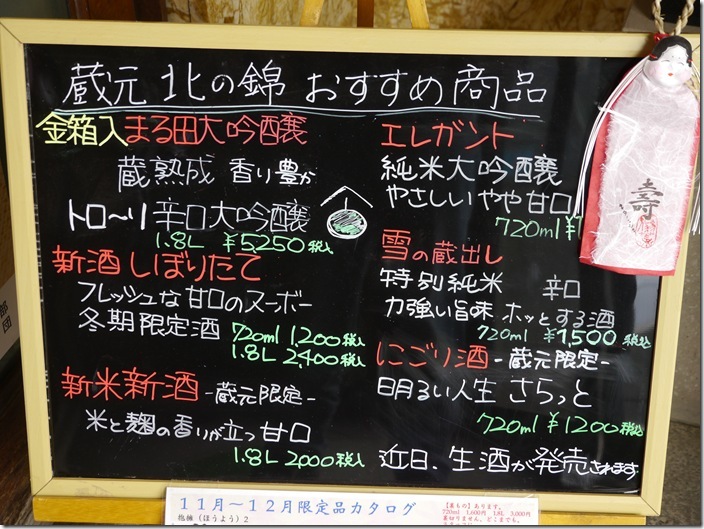 蔵元 北の錦 おすすめ商品
金箱入まる田大吟醸
蔵熟成 香り豊か
トロ〜リ 辛口大吟醸
1.8L ¥5250税込
新酒しぼりたて
フレッシュな甘口のヌーボー
冬期限定酒 720ml 1,200税込
1.8L 2,400税込
新米新酒 -蔵元限定-
米と麹の香りが立つ甘口
1.8L 2000税込
エレガント
純米大吟醸
やさしいやや甘口
720ml ¥1
雪の蔵出し
特別純米 辛口
力強い旨味 ホッとする酒
720ml ¥1,500税込
にごり酒 -蔵元限定-
明るい人生 さらっと
720ml ¥1200税込
近日、生酒が発売されます
寿
11月〜12月限定品カタログ
(ほうよう)2
720ml 1,600円 1.8L 3,000円